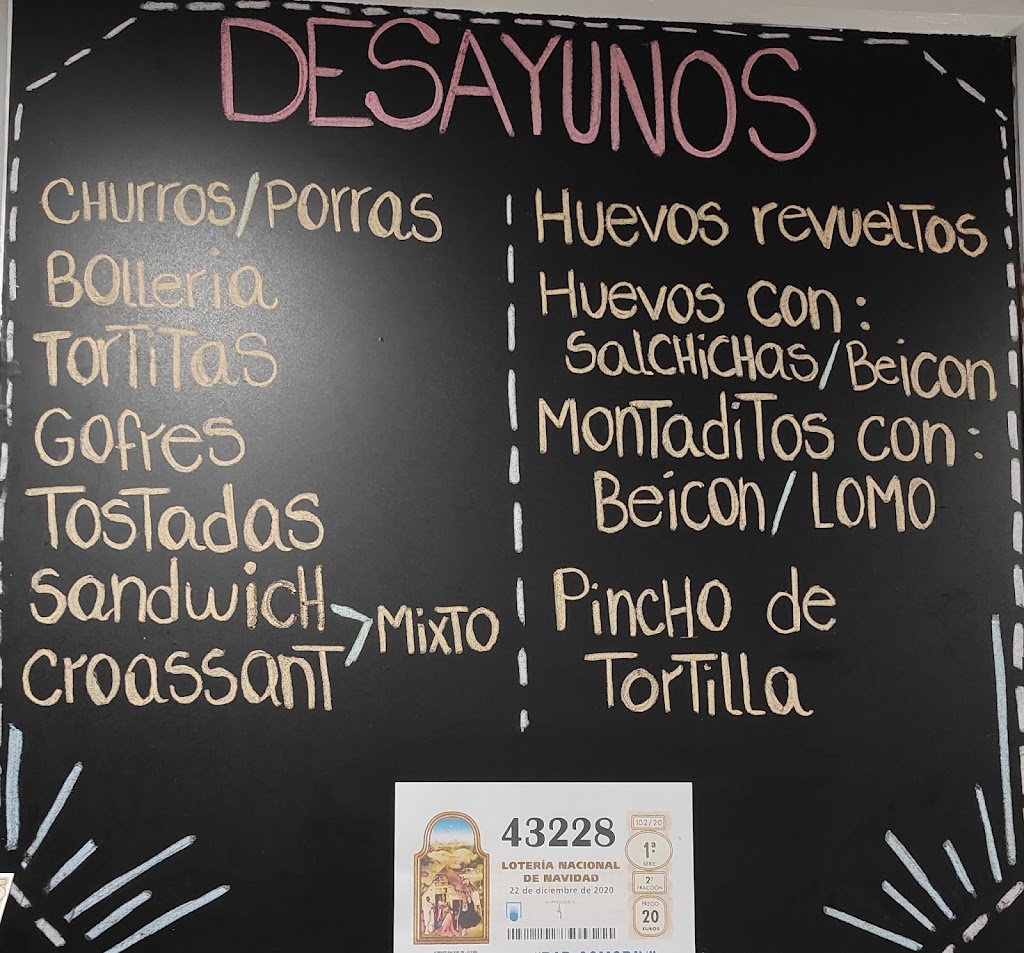 DESAYUNOS
CHURROS/PORRAS
BOLLERIA
TORTITAS
GOFRES
TOSTADAS
SANDWICH
CROASSANT
> MIXTO
HUEVOS REVUELTOS
HUEVOS CON:
SALCHICHAS/BEICON
MONTADITOS CON:
BEICON/LOMO
PINCHO DE
TORTILLA
43228
LOTERÍA NACIONAL
DE NAVIDAD
22 de diciembre de 2020
102/20
1ª
SERIE
2ª
FRACCIÓN
PRECIO
20
EUROS